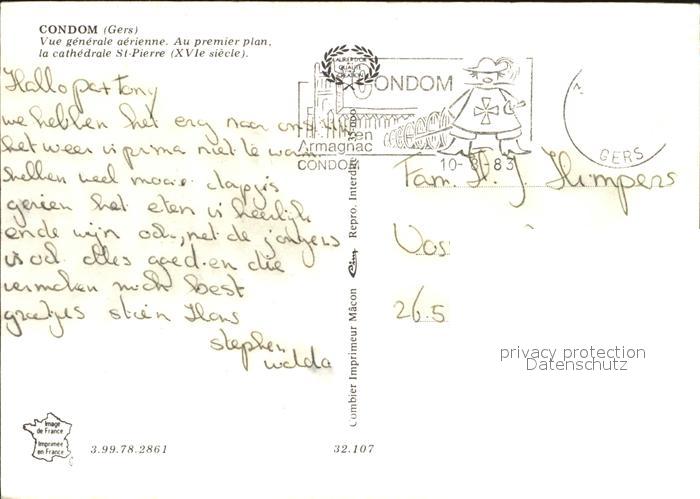 CONDOM (Gers)
Vue générale aérienne. Au premier plan,
la cathédrale St-Pierre (XVIe siècle).
Hallo pa + Tony
we hebben het erg naar
het weer is prima niet te warm
hebben veel mooie dorpjes
gezien het eten is heerlijk
en de wijn ook, met de jongens
is ook alles goed en die
vermaken zich best
groetjes stien Hans
stephen
walda
LAURIER D'OR
QUALITÉ
CRÉATION
CONDOM
en
Armagnac
CONDOM
10-8-83
GERS
Fam. H. J. Himpers
Vos
26.5
privacy protection
Datenschutz
Combier Imprimeur Mâcon Cim Repro. Interdite
Image
de France
Imprimée
en France
3.99.78.2861
32.107